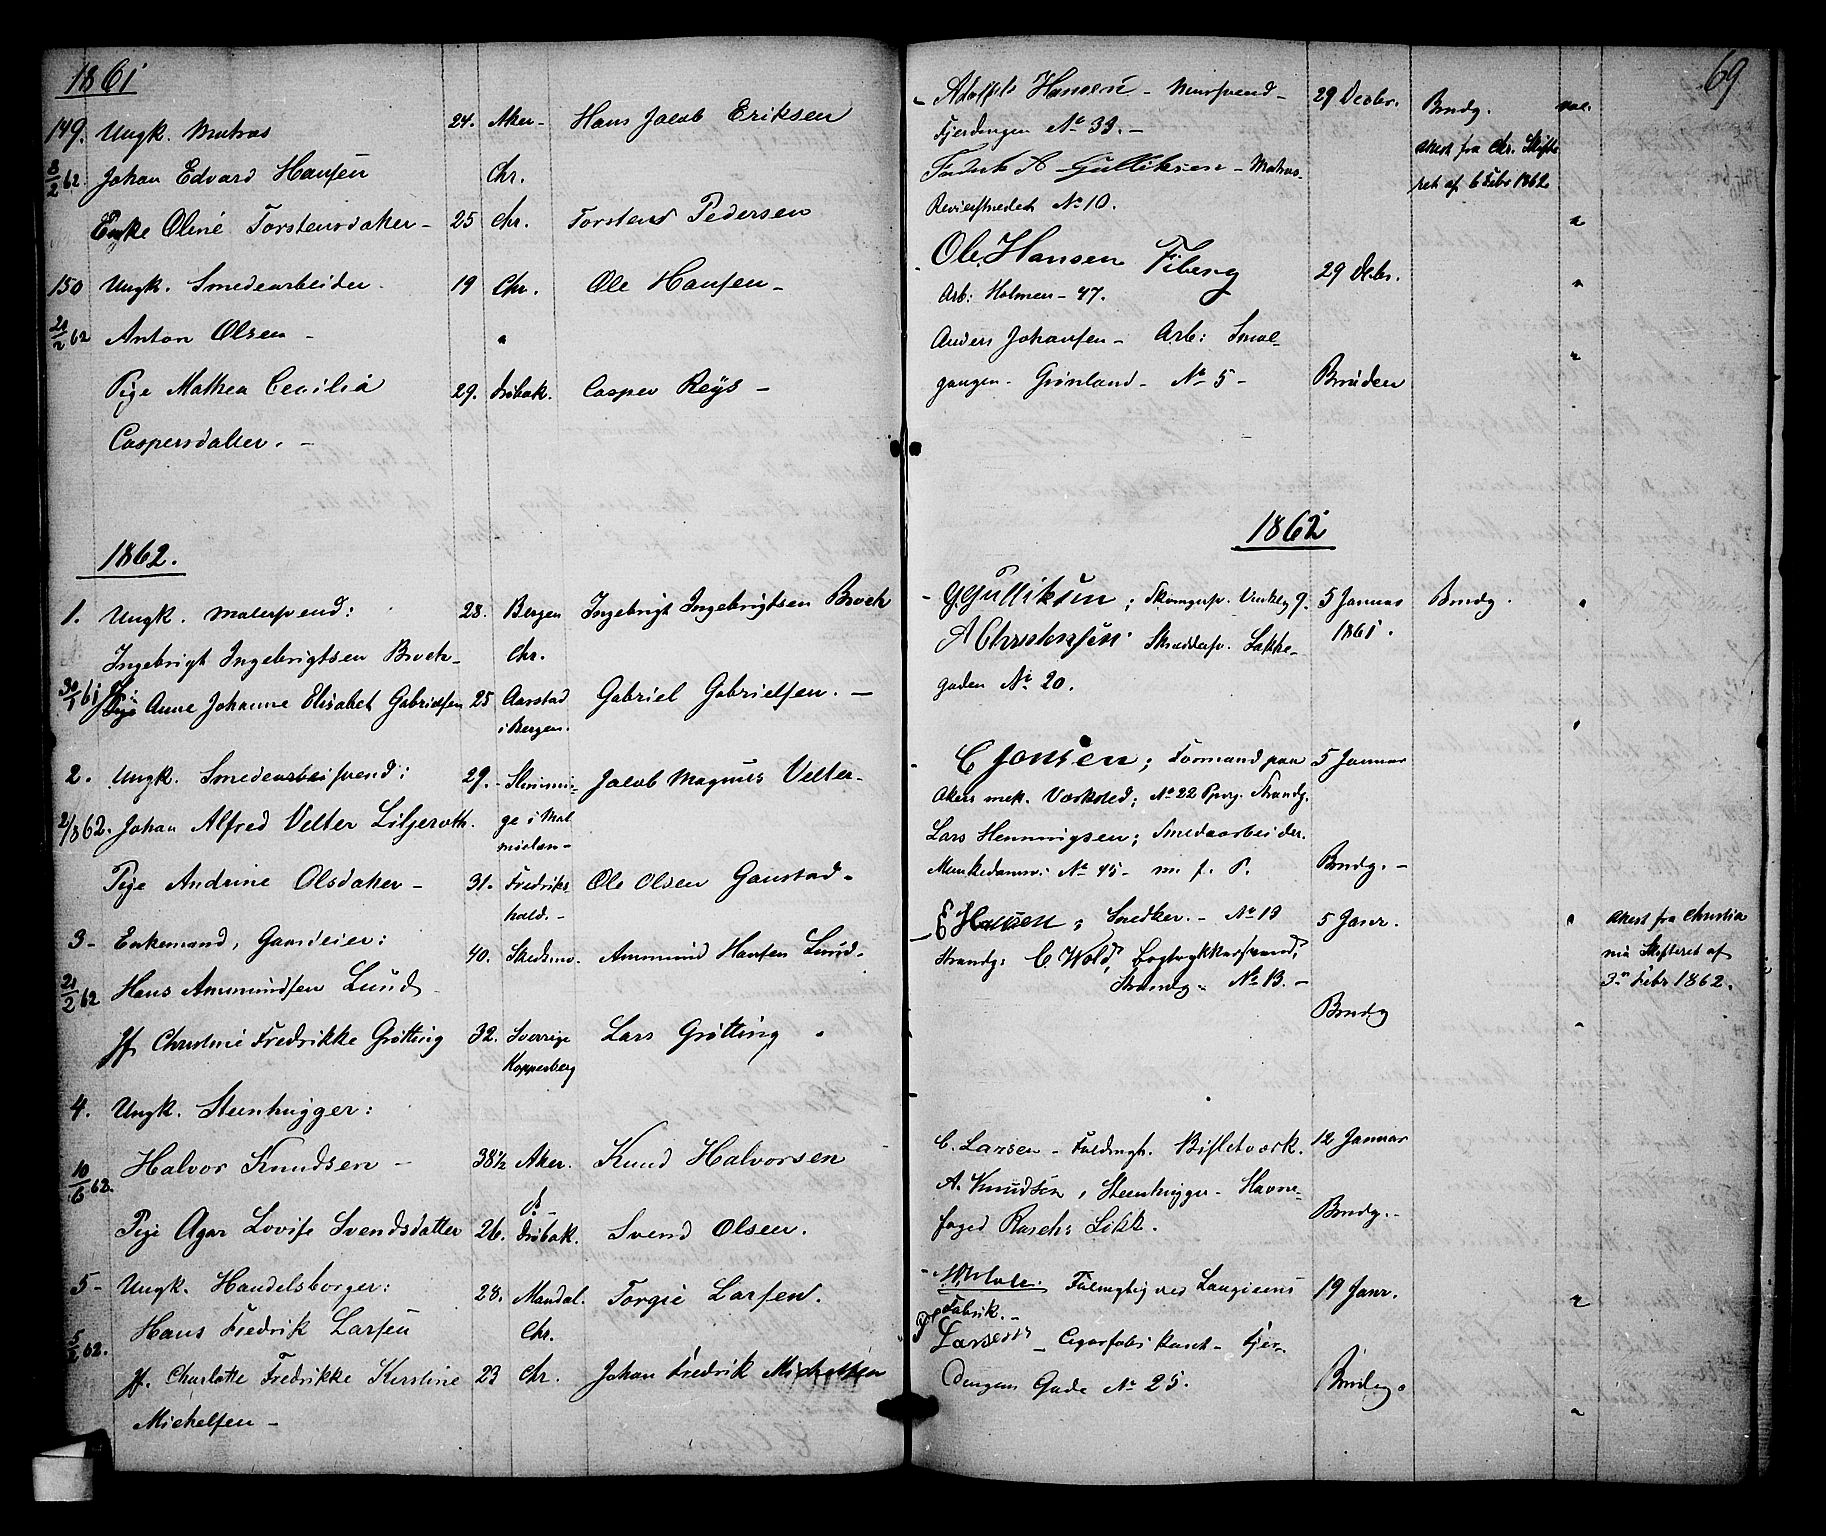 1861
149. Ungk. Matros 24. Aker- Hans Jacob Eriksen
8/2 62 Johan Edvard Hansen Chr.
Enke Oline Torstensdatter - 25 Chr. Torstens Pedersen
150 Ungk. Smedearbeider. 19 Chr. Ole Hansen -
21/2 62 Anton Olsen - "
Pige Mathea Cecilia 29. Drøbak. Casper Reys -
Caspersdatter. -
1862.
1. Ungk. Malersvend: 28. Bergen Ingebrigt Ingebrigtsen Broch
Ingebrigt Ingebrigtsen Broch - Chr.
30/1 61 Jf. Anne Johanne Elisabet Gabrielsen 25 Aarstad Gabriel Gabrielsen. -
i Bergen.
2. Ungk. Smedesvend: 29. Jacob Magnus Velter -
2/8 62. Johan Alfred Velter Liljeroth. ge i Mal
møelæn -
Pige Andrine Olsdatter - 31. Fredriks- Ole Olsen Gaustad -
hald. -
3 - Enkemand, Gaardeier: 40. Skedsmo. Ammund Hansen Lund -
21/2 62 Hans Ammundsen Lund
Jf. Christine Fredrikke Grøtting 32. Sverrige Lars Grøtting
Kopperberg
4. Ungk. Steenhugger:
10/6 62. Halvor Knudsen - 38 1/2 Aker. Knud Halvorsen
Pige Agar Lovise Svendsdatter 26. Drøbak. Svend Olsen.
5 - Ungk. Handelsborger: 28. Mandal. Torgie Larsen.
5/2 62. Hans Fredrik Larsen Chr.
Jf. Charlotte Fredrikke Kirstine 23 Chr. Johan Fredrik Michelsen
Michelsen -
69
Adolph Hansen - Muursvend - 29 Decbr. Brudg. nat.
Fjerdingen No 33. - Attest fra Chr. Skifte
Fredrik A Gulliksen - Matros - ret af 6 Febr 1862
Revierstrædet No 10. "
Ole Hansen Fiberg 29 Decbr. "
Arb: Holmen - 47.
Anders Johansen - Arb: Smal- "
gangen - Grønland - No 5 - Bruden
1862
G Gulliksen; Skomagersv. Vinkelg 9. 5 Januar Brudg. "
A Christensen Skræddersv. Lakke- 1861.
gaden No 20. "
C Jonsen; Formand paa 5 Januar
Akers mek. Værksted; No 22 Pperv. Strandg.
Lars Henningsen; Smedearbeider.
Munkedamsv: No 45 - m. f. P. Brudg. -
E Hansen; Snedker. - No 13 5 Janr. " Attest fra Christia
Strandg: C. Wold, Bogtrykkersvend, nia Skifteret af
Strandg. No 13. - 3die Febr 1862.
Brudg "
C. Larsen - Fuldmgt. Bisletværk. 12 Januar
A. Knudsen, Steenhugger - Havne-
foged Rasch: Løkk. Brudg. -
Fulmægtig ved Langsens 19 Janr. "
Fabrik. -
Larsen - Cigarfabrikant - Fjer-
dingen Gade No 25. Brudg. "